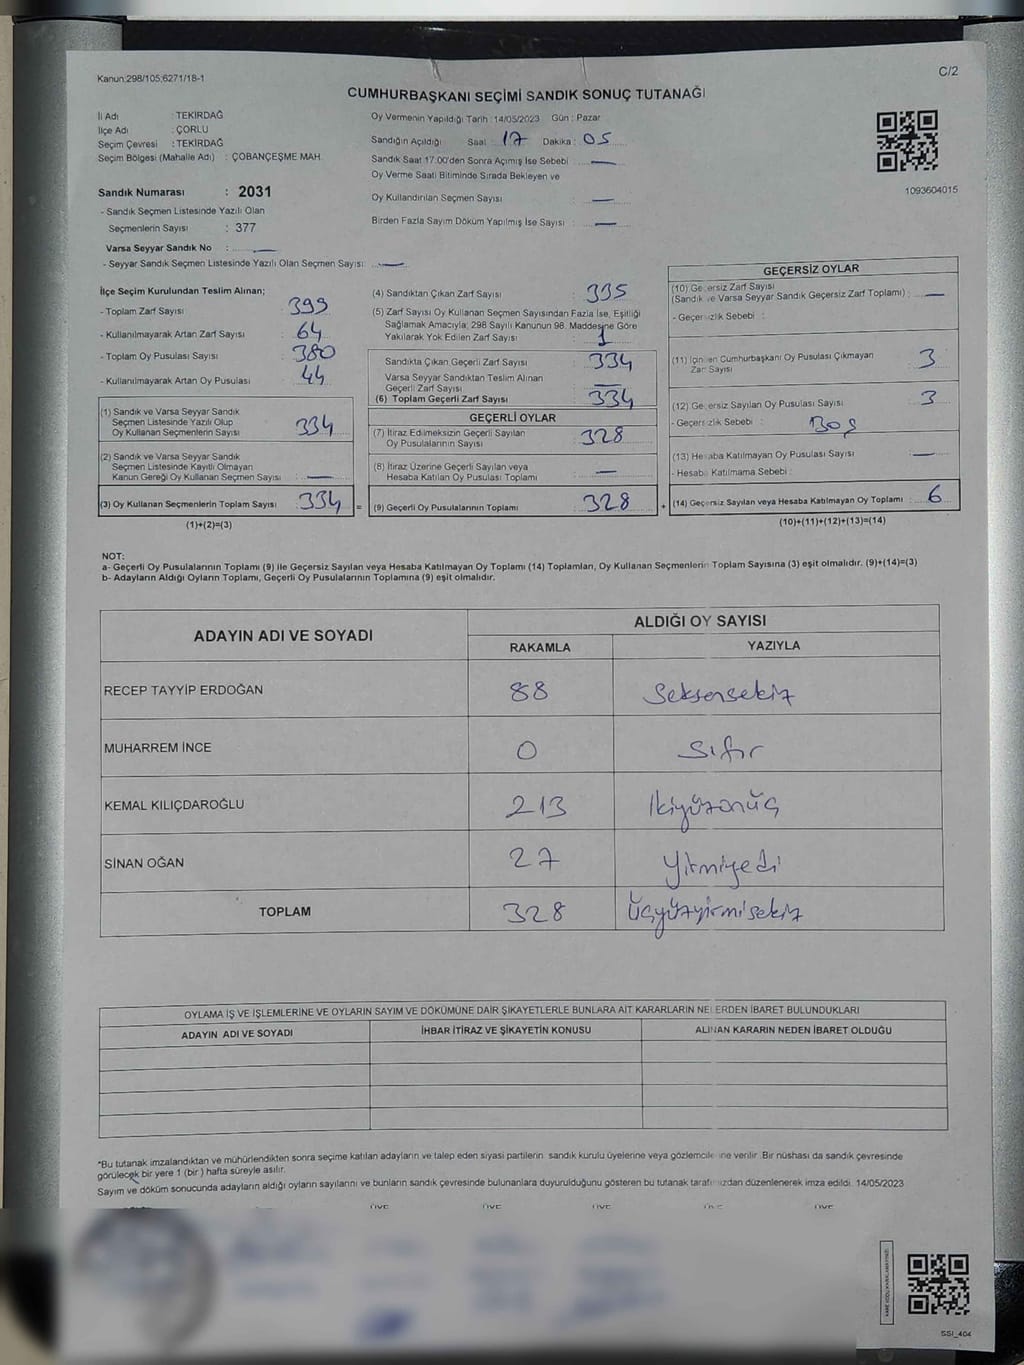 Kanun:298/105;6271/18-1
C/2
CUMHURBAŞKANI SEÇİMİ SANDIK SONUÇ TUTANAĞI
İl Adı : TEKİRDAĞ
İlçe Adı : ÇORLU
Seçim Çevresi : TEKİRDAĞ
Seçim Bölgesi (Mahalle Adı) : ÇOBANÇEŞME MAH.
Sandık Numarası : 2031
- Sandık Seçmen Listesinde Yazılı Olan
Seçmenlerin Sayısı : 377
Varsa Seyyar Sandık No : —
- Seyyar Sandık Seçmen Listesinde Yazılı Olan Seçmen Sayısı: —
Oy Vermenin Yapıldığı Tarih : 14/05/2023 Gün : Pazar
Sandığın Açıldığı Saat : 17 Dakika : 05
Sandık Saat 17.00'den Sonra Açımış İse Sebebi : —
Oy Verme Saati Bitiminde Sırada Bekleyen ve
Oy Kullandırılan Seçmen Sayısı : —
Birden Fazla Sayım Döküm Yapılmış İse Sayısı : —
1093604015
İlçe Seçim Kurulundan Teslim Alınan;
- Toplam Zarf Sayısı : 399
- Kullanılmayarak Artan Zarf Sayısı : 64
- Toplam Oy Pusulası Sayısı : 380
- Kullanılmayarak Artan Oy Pusulası : 44
(1) Sandık ve Varsa Seyyar Sandık
Seçmen Listesinde Yazılı Olup
Oy Kullanan Seçmenlerin Sayısı : 334
(2) Sandık ve Varsa Seyyar Sandık
Seçmen Listesinde Kayıtlı Olmayan
Kanun Gereği Oy Kullanan Seçmen Sayısı : —
(3) Oy Kullanan Seçmenlerin Toplam Sayısı : 334 =
(1)+(2)=(3)
(4) Sandıktan Çıkan Zarf Sayısı : 335
(5) Zarf Sayısı Oy Kullanan Seçmen Sayısından Fazla İse, Eşitliği
Sağlamak Amacıyla; 298 Sayılı Kanunun 98. Maddesine Göre
Yakılarak Yok Edilen Zarf Sayısı : 1
Sandıkta Çıkan Geçerli Zarf Sayısı : 334
Varsa Seyyar Sandıktan Teslim Alınan
Geçerli Zarf Sayısı : —
(6) Toplam Geçerli Zarf Sayısı : 334
GEÇERLİ OYLAR
(7) İtiraz Edilmeksizin Geçerli Sayılan
Oy Pusulalarının Sayısı : 328
(8) İtiraz Üzerine Geçerli Sayılan veya
Hesaba Katılan Oy Pusulası Toplamı : —
(9) Geçerli Oy Pusulalarının Toplamı : 328 +
GEÇERSİZ OYLAR
(10) Geçersiz Zarf Sayısı
(Sandık ve Varsa Seyyar Sandık Geçersiz Zarf Toplamı) : —
- Geçersizlik Sebebi :
(11) İçinden Cumhurbaşkanı Oy Pusulası Çıkmayan
Zarf Sayısı : 3
(12) Geçersiz Sayılan Oy Pusulası Sayısı : 3
- Geçersizlik Sebebi : Boş
(13) Hesaba Katılmayan Oy Pusulası Sayısı : —
- Hesaba Katılmama Sebebi :
(14) Geçersiz Sayılan veya Hesaba Katılmayan Oy Toplamı : 6
(10)+(11)+(12)+(13)=(14)
NOT:
a- Geçerli Oy Pusulalarının Toplamı (9) ile Geçersiz Sayılan veya Hesaba Katılmayan Oy Toplamı (14) Toplamları, Oy Kullanan Seçmenlerin Toplam Sayısına (3) eşit olmalıdır. (9)+(14)=(3)
b- Adayların Aldığı Oyların Toplamı, Geçerli Oy Pusulalarının Toplamına (9) eşit olmalıdır.
ADAYIN ADI VE SOYADI
ALDIĞI OY SAYISI
RAKAMLA YAZIYLA
RECEP TAYYİP ERDOĞAN 88 Seksensekiz
MUHARREM İNCE 0 Sıfır
KEMAL KILIÇDAROĞLU 213 İkiyüzonüç
SİNAN OĞAN 27 Yirmiyedi
TOPLAM 328 Üçyüzyirmisekiz
OYLAMA İŞ VE İŞLEMLERİNE VE OYLARIN SAYIM VE DÖKÜMÜNE DAİR ŞİKAYETLERLE BUNLARA AİT KARARLARIN NELERDEN İBARET BULUNDUKLARI
ADAYIN ADI VE SOYADI İHBAR İTİRAZ VE ŞİKAYETİN KONUSU ALINAN KARARIN NEDEN İBARET OLDUĞU
*Bu tutanak imzalandıktan ve mühürlendikten sonra seçime katılan adayların ve talep eden siyasi partilerin sandık kurulu üyelerine veya gözlemcilerine verilir. Bir nüshası da sandık çevresinde
görülecek bir yere 1 (bir) hafta süreyle asılır.
Sayım ve döküm sonucunda adayların aldığı oyların sayılarını ve bunların sandık çevresinde bulunanlara duyurulduğunu gösteren bu tutanak tarafımızdan düzenlenerek imza edildi. 14/05/2023
ÜYE ÜYE ÜYE ÜYE ÜYE
SSI_404